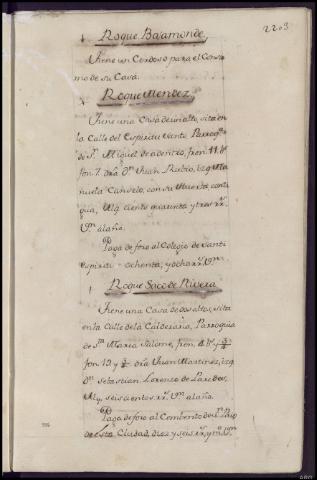 2203
Roque Bajamonde
Tiene un Cerdoso para el Consu
mo de su Casa.
Roque Mendez
Tiene una Casa de un alto, sita en
la Calle del Espiritu Santo Parroq.ª
de S.n Miguel de adentro, fren. 11. v.s
fon. 7. dra D.n Juan Rubio, izq Ma
nuela Canvelo, con su Huerta conti
gua, Alq. ciento quarenta y tres rr.s
V.on al año.
Paga de foro al Colegio de Santi
espiritu ochenta, y ocho rr.s V.on
Roque Saco de Rivera
Tiene una Casa de dos altos, sita
en la Calle de la Caldereria, Parroquia
de S.ta Maria Salome, fren. 4 v.s y 3/4
fon 15 y 3/4 dra Juan Martinez, izq
D.n Sebastian Lorenzo de Paredes,
Alq. seiscientos rr.s V.on al año.
Paga de foro al Combento de
esta Ciudad, diez y seis rr.s y m.o V.on